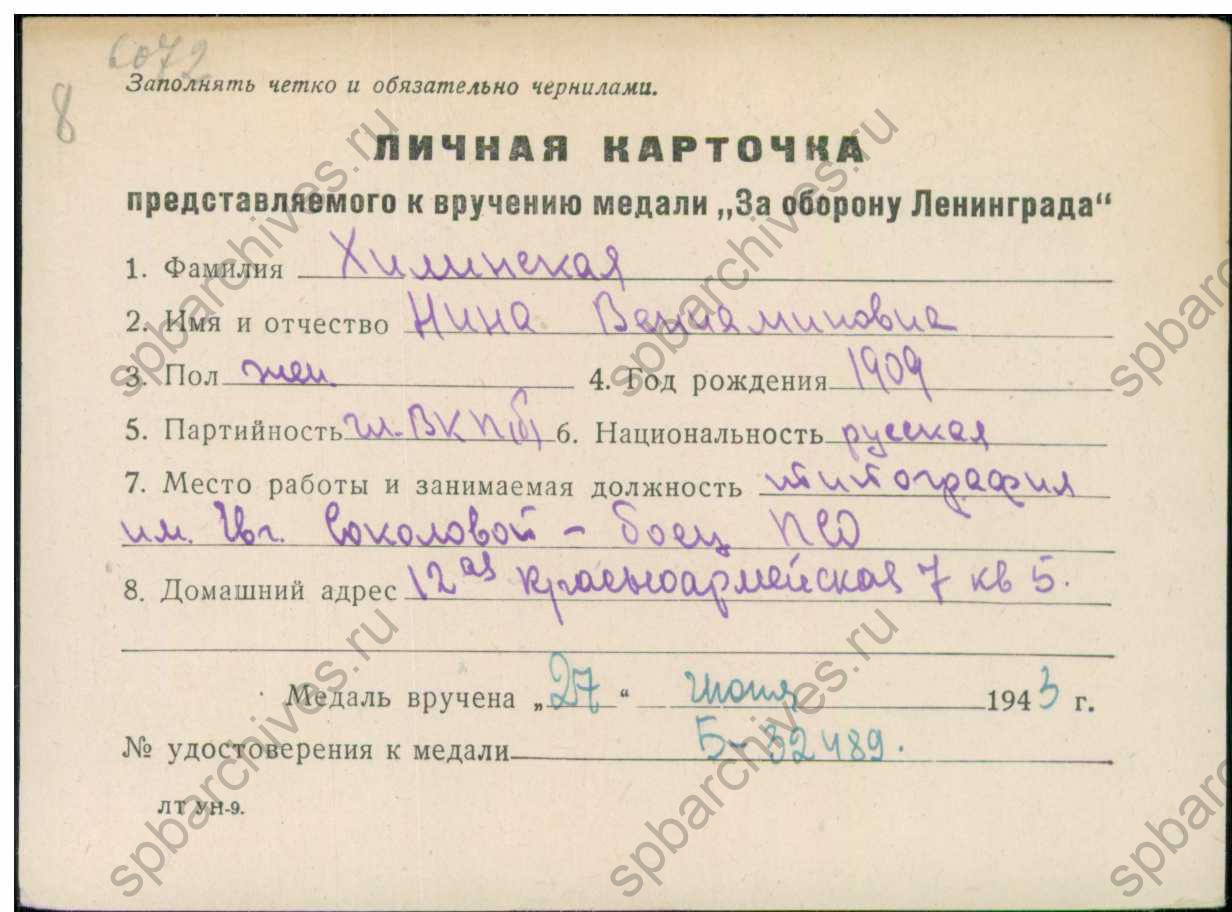 6072
8
Заполнять четко и обязательно чернилами.
ЛИЧНАЯ КАРТОЧКА
представляемого к вручению медали „За оборону Ленинграда“
1. Фамилия Химинская
2. Имя и отчество Нина Вениаминовна
3. Пол жен. 4. Год рождения 1909
5. Партийность чл. ВКП(б) 6. Национальность русская
7. Место работы и занимаемая должность типография
им. Евг. Соколовой – боец ПСО
8. Домашний адрес 12ая Красноармейская 7 кв 5.
Медаль вручена „27“ июня 1943 г.
№ удостоверения к медали Б–32489.
ЛТ УН-9.
spbarchives.ru